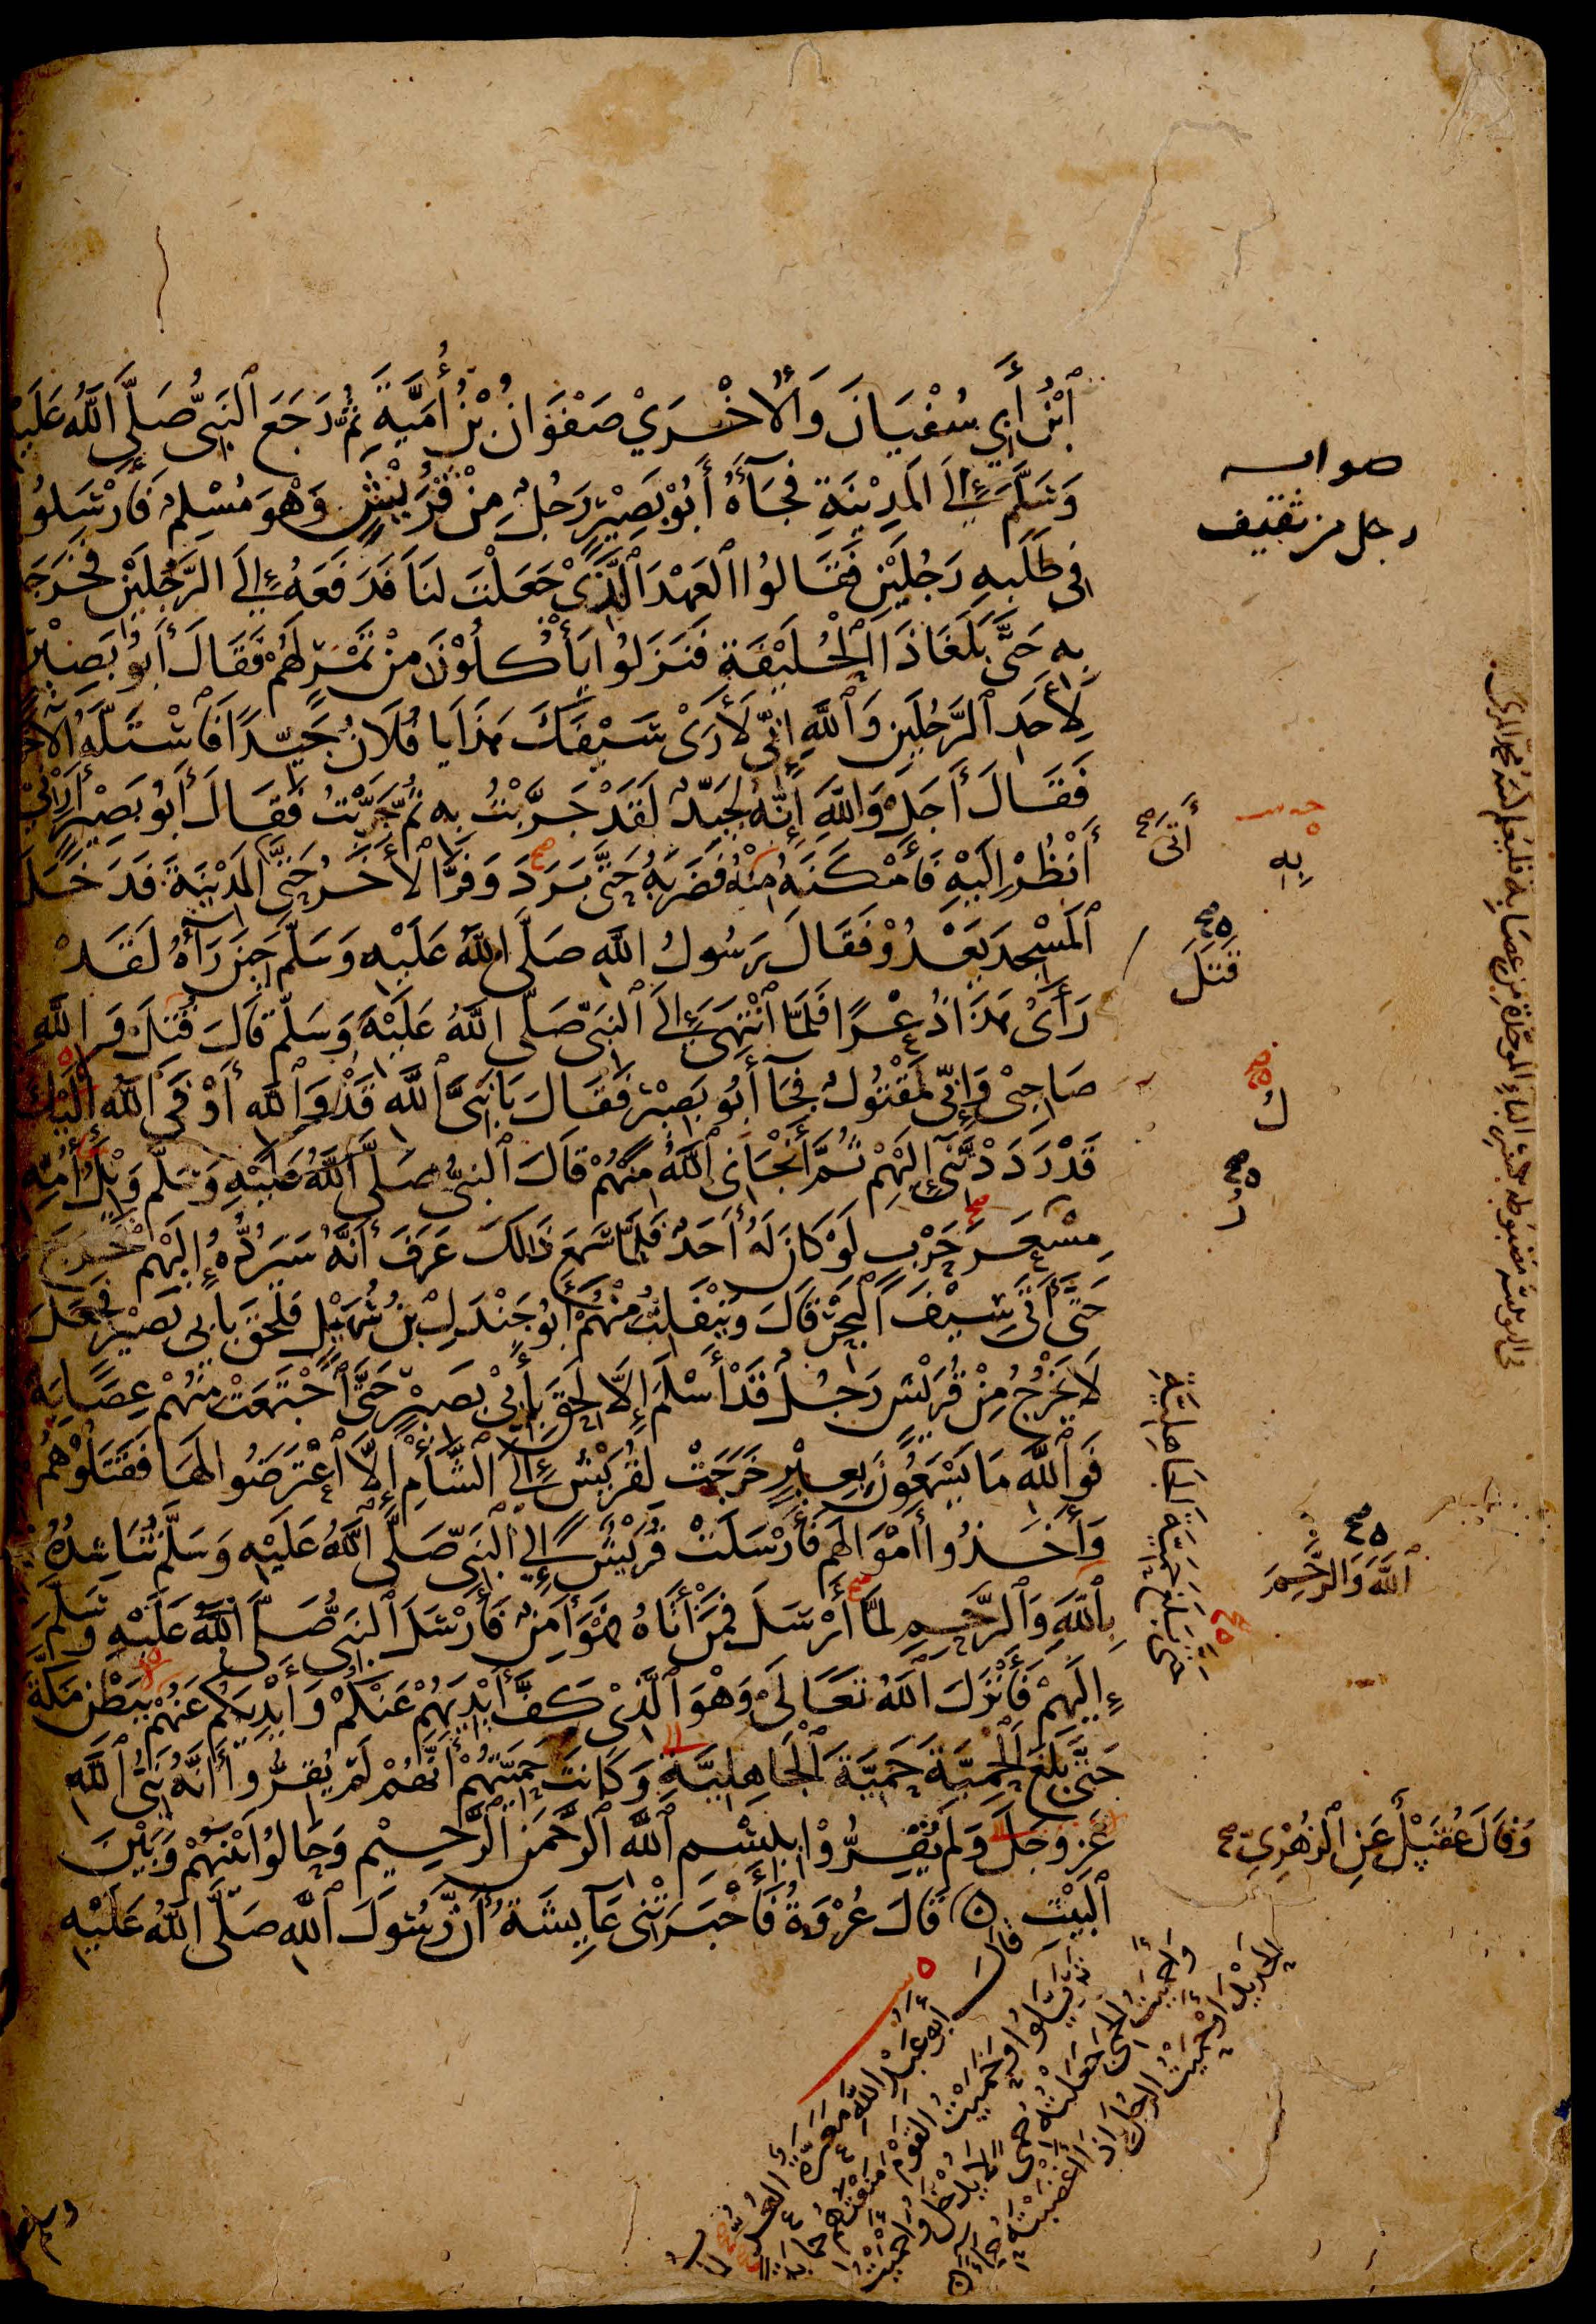 ٱبْنُ أَبِي سُفْيَانَ وَالْأُخْرَيْ صَفْوَانُ بْنُ أُمَيَّةَ ثُمَّ رَجَعَ ٱلنَّبِيُّ صَلَّى اللَّهُ عَلَيْهِ
وَسَلَّمَ إِلَى الْمَدِيْنَةِ فَجَآءَهُ أَبُوْ بَصِيْرٍ رَجُلٌ مِنْ قُرَيْشٍ وَهْوَ مُسْلِمٌ فَأَرْسَلُوا
فِي طَلَبِهِ رَجُلَيْنِ فَقَالُوا الْعَهْدَ الَّذِيْ جَعَلْتَ لَنَا فَدَفَعَهُ إِلَى الرَّجُلَيْنِ فَخَرَجَا
بِهِ حَتَّى بَلَغَا ذَا الْحُلَيْفَةِ فَنَزَلُوا يَأْكُلُوْنَ مِنْ تَمْرٍ لَهُمْ فَقَالَ أَبُوْ بَصِيْرٍ
لِأَحَدِ ٱلرَّجُلَيْنِ وَٱللَّهِ إِنِّي لَأَرَىْ سَيْفَكَ هَذَا يَا فُلَانُ جَيِّدًا فَاسْتَلَّهُ الْآخَرُ
فَقَالَ أَجَلْ وَاللَّهِ إِنَّهُ لَجَيِّدٌ لَقَدْ جَرَّبْتُ بِهِ ثُمَّ جَرَّبْتُ فَقَالَ أَبُوْ بَصِيْرٍ أَرِنِيْ
أَنْظُرْ إِلَيْهِ فَأَمْكَنَهُ مِنْهُ فَضَرَبَهُ حَتَّى بَرَدَ وَفَرَّ الْآخَرُ حَتَّى الْمَدِيْنَةَ فَدَخَلَ
ٱلْمَسْجِدَ يَعْدُوْ فَقَالَ رَسُوْلُ اللَّهِ صَلَّى اللَّهُ عَلَيْهِ وَسَلَّمَ حِيْنَ رَآهُ لَقَدْ
رَأَىْ هَذَا ذُعْرًا فَلَمَّا ٱنْتَهَى إِلَى ٱلنَّبِيِّ صَلَّى اللَّهُ عَلَيْهِ وَسَلَّمَ قَالَ قُتِلَ وَاللَّهِ
صَاحِبِيْ وَإِنِّي لَمَقْتُوْلٌ فَجَآءَ أَبُوْ بَصِيْرٍ فَقَالَ يَا نَبِيَّ ٱللَّهِ قَدْ وَٱللَّهِ أَوْفَى ٱللَّهُ إِلَيْكَ
قَدْ رَدَدْتَنِي إِلَيْهِمْ ثُمَّ أَنْجَانِي ٱللَّهُ مِنْهُمْ قَالَ ٱلنَّبِيُّ صَلَّى اللَّهُ عَلَيْهِ وَسَلَّمَ وَيْلُ أُمِّهِ
مِسْعَرَ حَرْبٍ لَوْ كَانَ لَهُ أَحَدٌ فَلَمَّا سَمِعَ ذَلِكَ عَرَفَ أَنَّهُ سَيَرُدُّهُ إِلَيْهِمْ فَخَرَجَ
حَتَّى أَتَى سِيْفَ الْبَحْرِ قَالَ وَيَنْفَلِتُ مِنْهُمْ أَبُوْ جَنْدَلِ بْنُ سُهَيْلٍ فَلَحِقَ بِأَبِي بَصِيْرٍ فَجَعَلَ
لَا يَخْرُجُ مِنْ قُرَيْشٍ رَجُلٌ قَدْ أَسْلَمَ إِلَّا لَحِقَ بِأَبِيْ بَصِيْرٍ حَتَّى ٱجْتَمَعَتْ مِنْهُمْ عِصَابَةٌ
فَوَٱللَّهِ مَا يَسْمَعُوْنَ بِعِيْرٍ خَرَجَتْ لِقُرَيْشٍ إِلَى ٱلشَّأْمِ إِلَّا ٱعْتَرَضُوا لَهَا فَقَتَلُوْهُمْ
وَأَخَذُوا أَمْوَالَهُمْ فَأَرْسَلَتْ قُرَيْشٌ إِلَى ٱلنَّبِيِّ صَلَّى ٱللَّهُ عَلَيْهِ وَسَلَّمَ تُنَاشِدُهُ
بِٱللَّهِ وَٱلرَّحِمِ لَمَّا أَرْسَلَ فَمَنْ أَتَاهُ فَهْوَ آمِنٌ فَأَرْسَلَ ٱلنَّبِيُّ صَلَّى ٱللَّهُ عَلَيْهِ وَسَلَّمَ
إِلَيْهِمْ فَأَنْزَلَ ٱللَّهُ تَعَالَىْ وَهْوَ ٱلَّذِيْ كَفَّ أَيْدِيَهُمْ عَنْكُمْ وَأَيْدِيَكُمْ عَنْهُمْ بِبَطْنِ مَكَّةَ
حَتَّى بَلَغَ ٱلْحَمِيَّةَ حَمِيَّةَ ٱلْجَاهِلِيَّةِ وَكَانَتْ حَمِيَّتُهُمْ أَنَّهُمْ لَمْ يُقِرُّوا أَنَّهُ نَبِيُّ ٱللَّهِ
عَزَّ وَجَلَّ وَلَمْ يُقِرُّوْا بِبِسْمِ ٱللَّهِ ٱلرَّحْمَنِ ٱلرَّحِيْمِ وَحَالُوْا بَيْنَهُمْ وَبَيْنَ
ٱلْبَيْتِ قَالَ عُرْوَةُ فَأَخْبَرَتْنِي عَآئِشَةُ أَنَّ رَسُولَ ٱللَّهِ صَلَّى اللَّهُ عَلَيْهِ
صوابه
رجل من ثقيف
به
أَتَى صح
قَتَلَ
ٱللَّهَ وَالرَّحِمَ
حتى بلغ حمية الجاهلية
وَقَالَ عُقَيْلٌ عَنِ ٱلزُّهْرِيِّ صح
قال أبو عبد الله معرة العر الجرب
تزيلوا وحميت القوم منعتهم حماية
وأحميت الحمى جعلته حمى لا يدخل وأحميت
الحديد وأحميت الرجل إذا أغضبته إحماء
وسلم